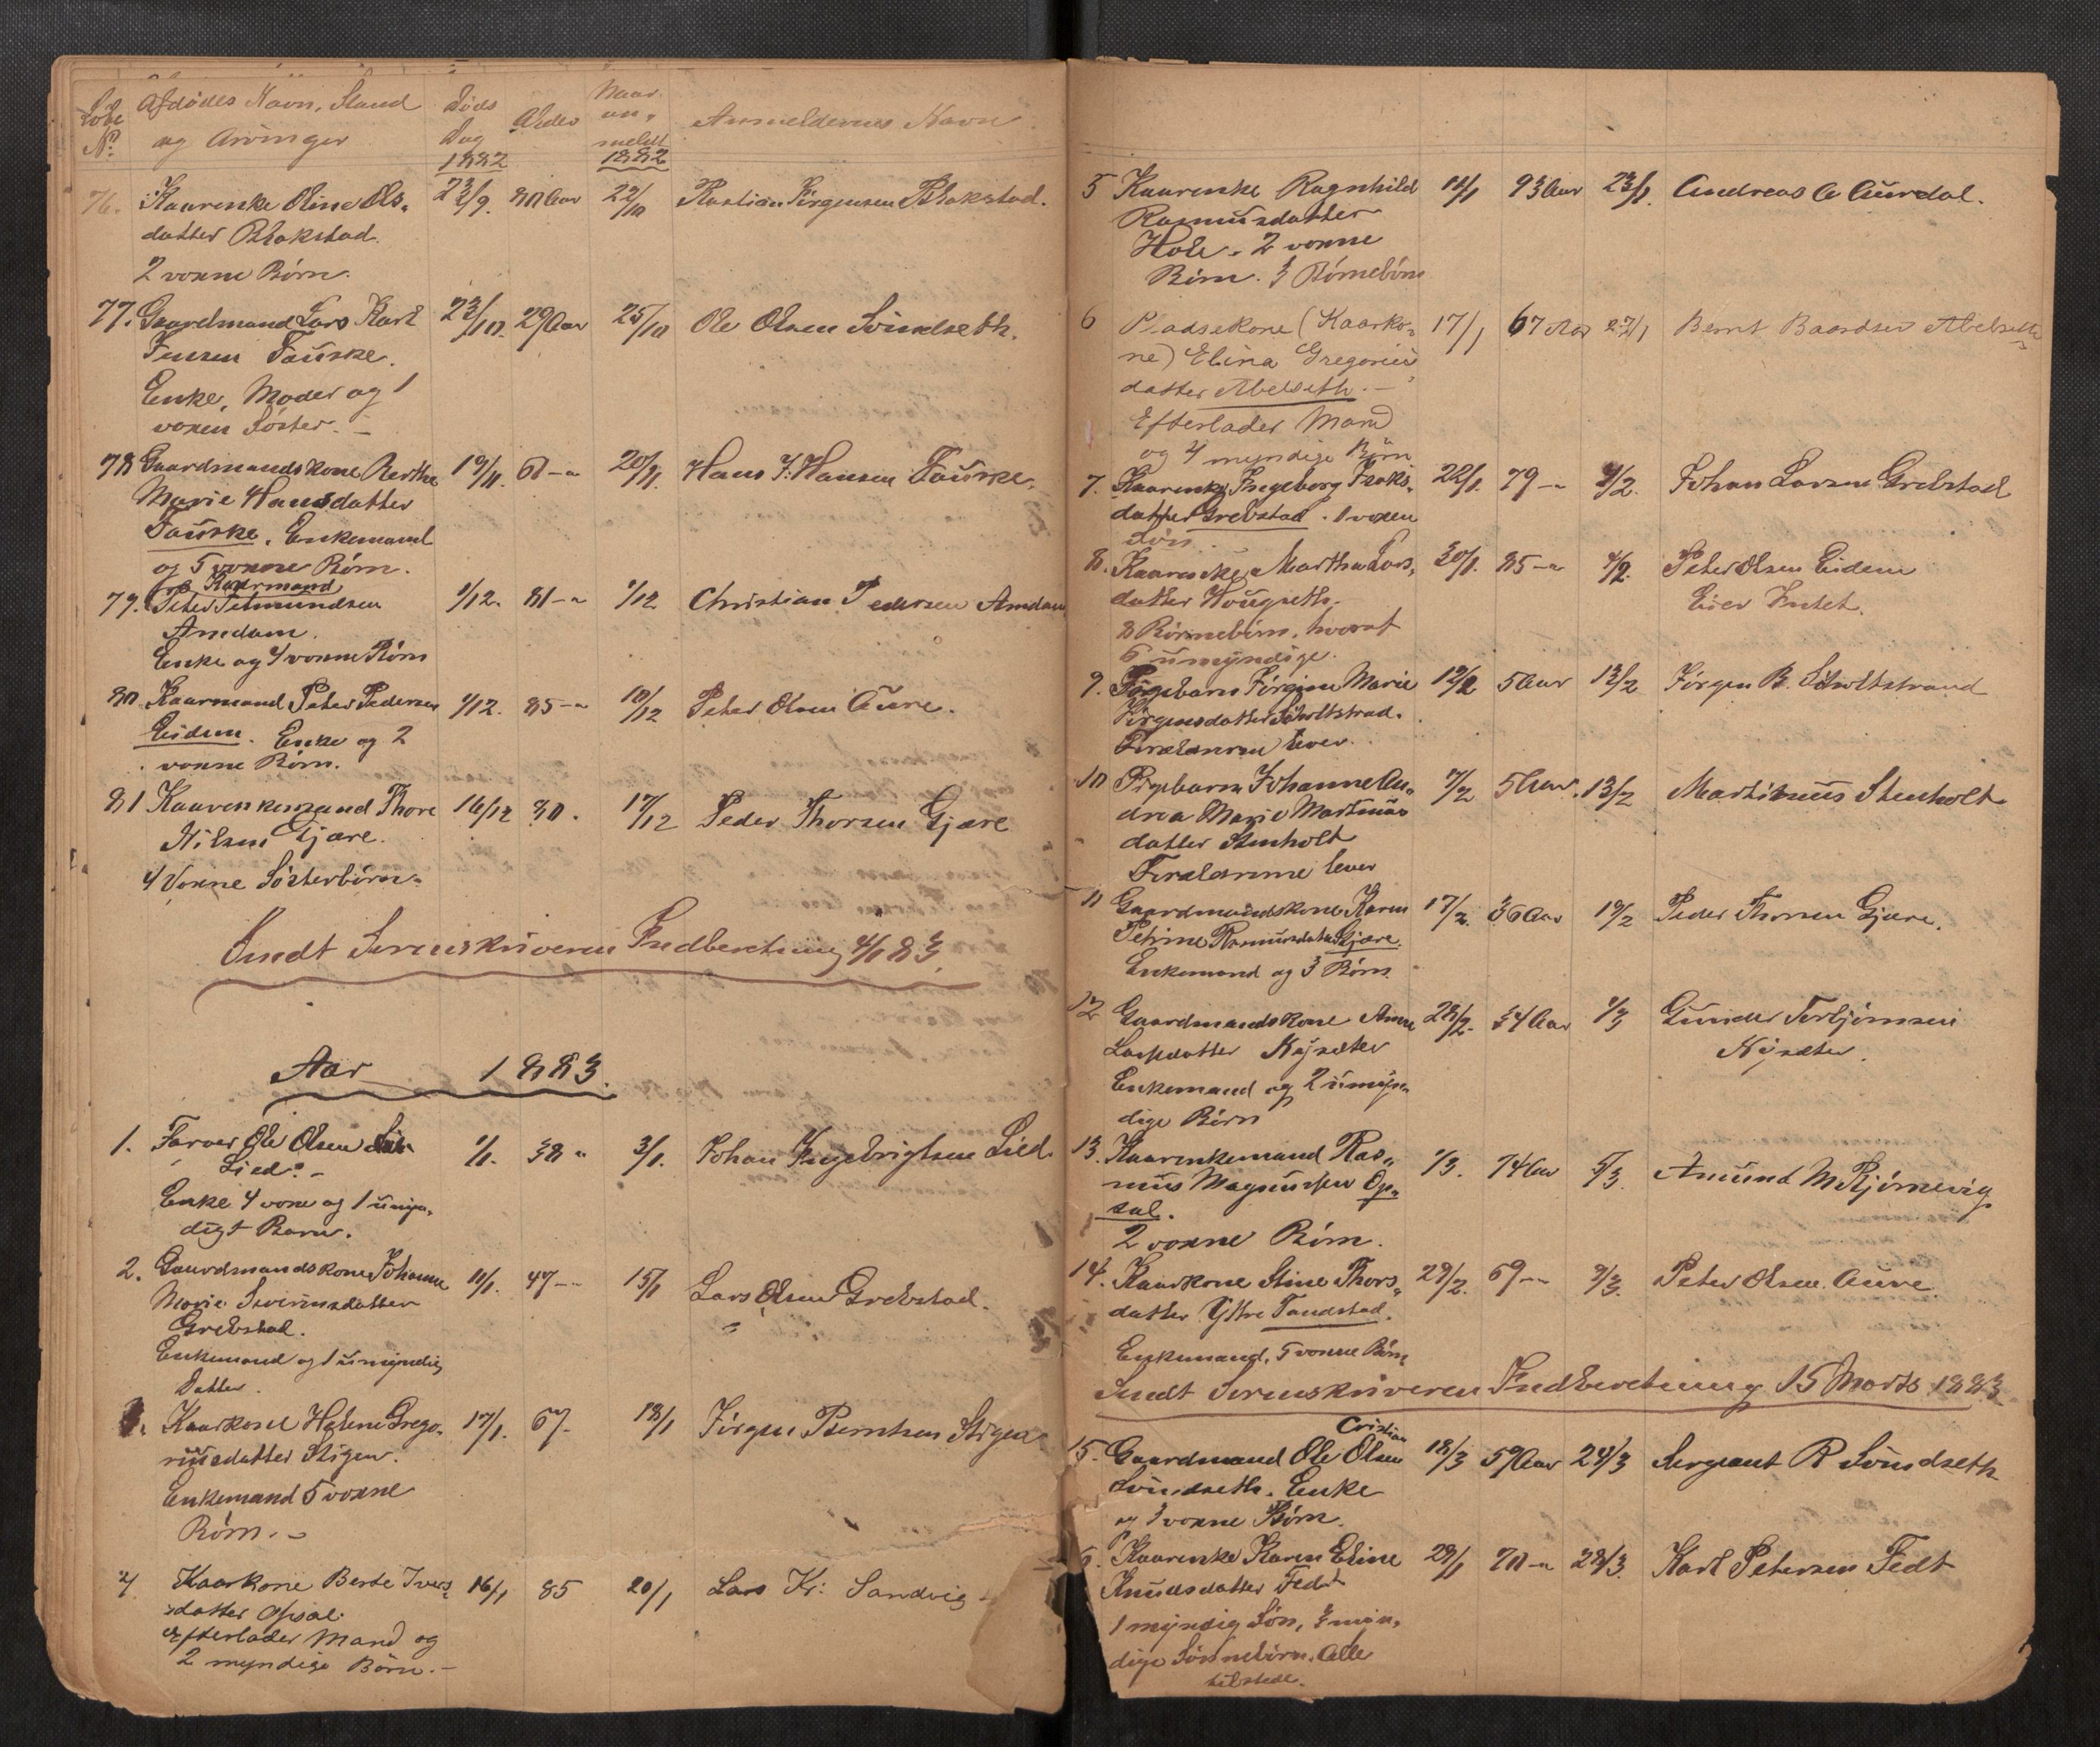 Løbe No. Afdødes Navn, Stand og Arvinger Døds Dag Alder Naar anmeldt Anmelderens Navn
1882 1882
76. Kaarenke Oline Ols- 23/9. 80 Aar 22/10 Bastian Jørgensen Blakstad.
datter Blakstad.
2 voxne Børn.
77. Gaardmand Lars Karl 23/10. 29 Aar 25/10 Ole Olsen Svindseth.
Jensen Fauske.
Enke, Moder og 1
voxen Søster. -
78 Gaardmandskone Berthe 19/11. 61 -"- 20/11. Hans J. Hansen Fauske.
Marie Hansdatter
Fauske. Enkemand
og 5 voxne Børn.
Kaarmand
79. Peter Petmundsen 1/12. 81 -"- 1/12 Christian Pedersen Amdam
Amdam.
Enke og 4 voxne Børn
80. Kaarmand Peter Pedersen 4/12. 85 -"- 10/12 Peter Olsen Aure.
Eidem. Enke og 2
voxne Børn.
81 Kaarenkemand Thore 16/12 80. 17/12 Peder Thorsen Gjære
Nilsen Gjære.
4 Voxne Søsterbørn.
Sendt Sorenskriveren Indberetning 4/1 83.
Aar 1883.
1. Farver Ole Olsen 1/1. 38 " 3/1. Johan Ingebrigtsen Lied.
Lied. -
Enke 4 voxne og 1 umyn-
digt Barn.
2. Gaardmandskone Johanne 11/1. 47 -"- 15/1 Lars Olsen Grebstad.
Marie Sivertsdatter
Grebstad.
Enkemand og 1 umyndig
Datter.
3. Kaarkone Helene Grego- 17/1. 67- 18/1 Jørgen Berntsen Stigen
riusdatter Stigen.
Enkemand 5 voxne
Børn. -
4 Kaarkone Berte Ivers- 16/1 85 20/1 Lars Kr: Sandvig
datter Opsal.
Efterlader Mand og
2 myndige Børn. -
5 Kaarenke Ragnhild 11/1 93 Aar 23/1. Andreas A Aurdal.
Rasmusdatter
Hole. 2 voxne
Børn. 3 Børnebørn
6 Pladsekone (Kaarko- 17/1 67 Aar 27/1 Bernt Baardsen Abelseth
ne) Elina Gregorius
datter Abelseth. -
Efterlader Mand
og 4 myndige Børn
7. Kaarenke Ingeborg Isaks- 22/1. 79 -"- 4/2. Johan Larsen Grebstad
datter Grebstad. 1 voxen
Søn.
8. Kaarenke Martha Lars- 30/1. 85 -"- 4/2. Peter Olsen Eidem
datter Hougseth. Eier Intet.
8 Børnebørn, hvoraf
6 umyndige.
9. Pigebarn Jørgine Marie 12/2 5 Aar 13/2 Jørgen B. Sholtstrand
Jørgensdatter Sholtstrand.
Forældrene lever.
10 Pigebarn Johanne An- 7/2 5 Aar. 13/2 Martinus Stenholt
drea Marie Martinus
datter Stenholt
Forældrene lever
11 Gaardmandskone Karen 17/2. 36 Aar 19/2 Peder Thorsen Gjære.
Petrine Rasmusdatter Gjære.
Enkemand og 3 Børn.
12 Gaardmandskone Anne 28/2. 54 Aar 1/3 Gunder Torbjørnsen
Larsdatter Nysæter Nysæter.
Enkemand og 2 umyn-
dige Børn
13. Kaarenkemand Ras- 1/3. 74 Aar 5/3. Amund M Bjørnevig
mus Magnussen Op-
sal.
2 voxne Børn.
14. Kaarkone Stine Thors- 28/2. 69 -"- 9/3. Peter Olsen Aure.
datter Ytre Tandstad.
Enkemand, 5 voxne Børn
Sendt Sorenskriveren Indberetning 15 Marts 1883
Cristian
15. Gaardmand Ole Olsen 18/3 59 Aar 24/3 Sergeant R Svindseth
Svindseth. Enke
og 3 voxne Børn.
6. Kaarenke Karen Eline 29/1 70 -"- 28/3. Karl Petersen Fedt
Knudsdatter Fedt
1 myndig Søn, 3 myn-
dige Sønnebørn. Alle
tilstede.